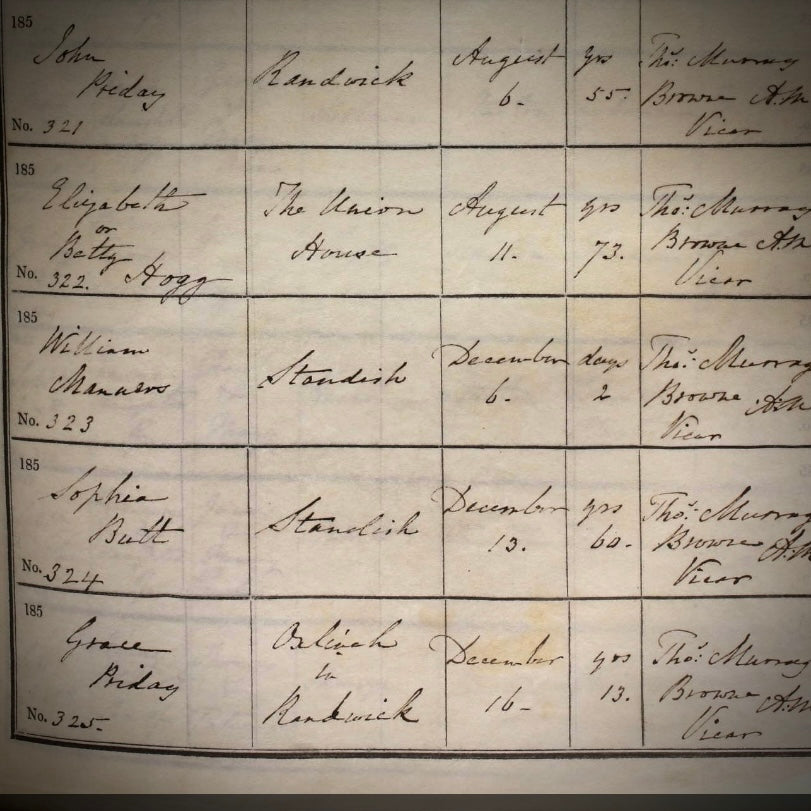 185
John
Priday
No. 321
Randwick
August
6.
yrs
55.
Thos: Murray
Browne A.M
Vicar
185
Elizabeth
or
Betty
No. 322. Hogg
The Union
House
August
11.
yrs
73.
Thos: Murray
Browne A.M
Vicar
185
William
Manners
No. 323
Standish
December
6.
days
2
Thos: Murray
Browne A.M
Vicar
185
Sophia
Butt
No. 324
Standish
December
13.
yrs
60.
Thos: Murray
Browne A.M
Vicar
185
Grace
Priday
No. 325.
Oxlinch
in
Randwick
December
16.
yrs
13.
Thos: Murray
Browne A.M
Vicar